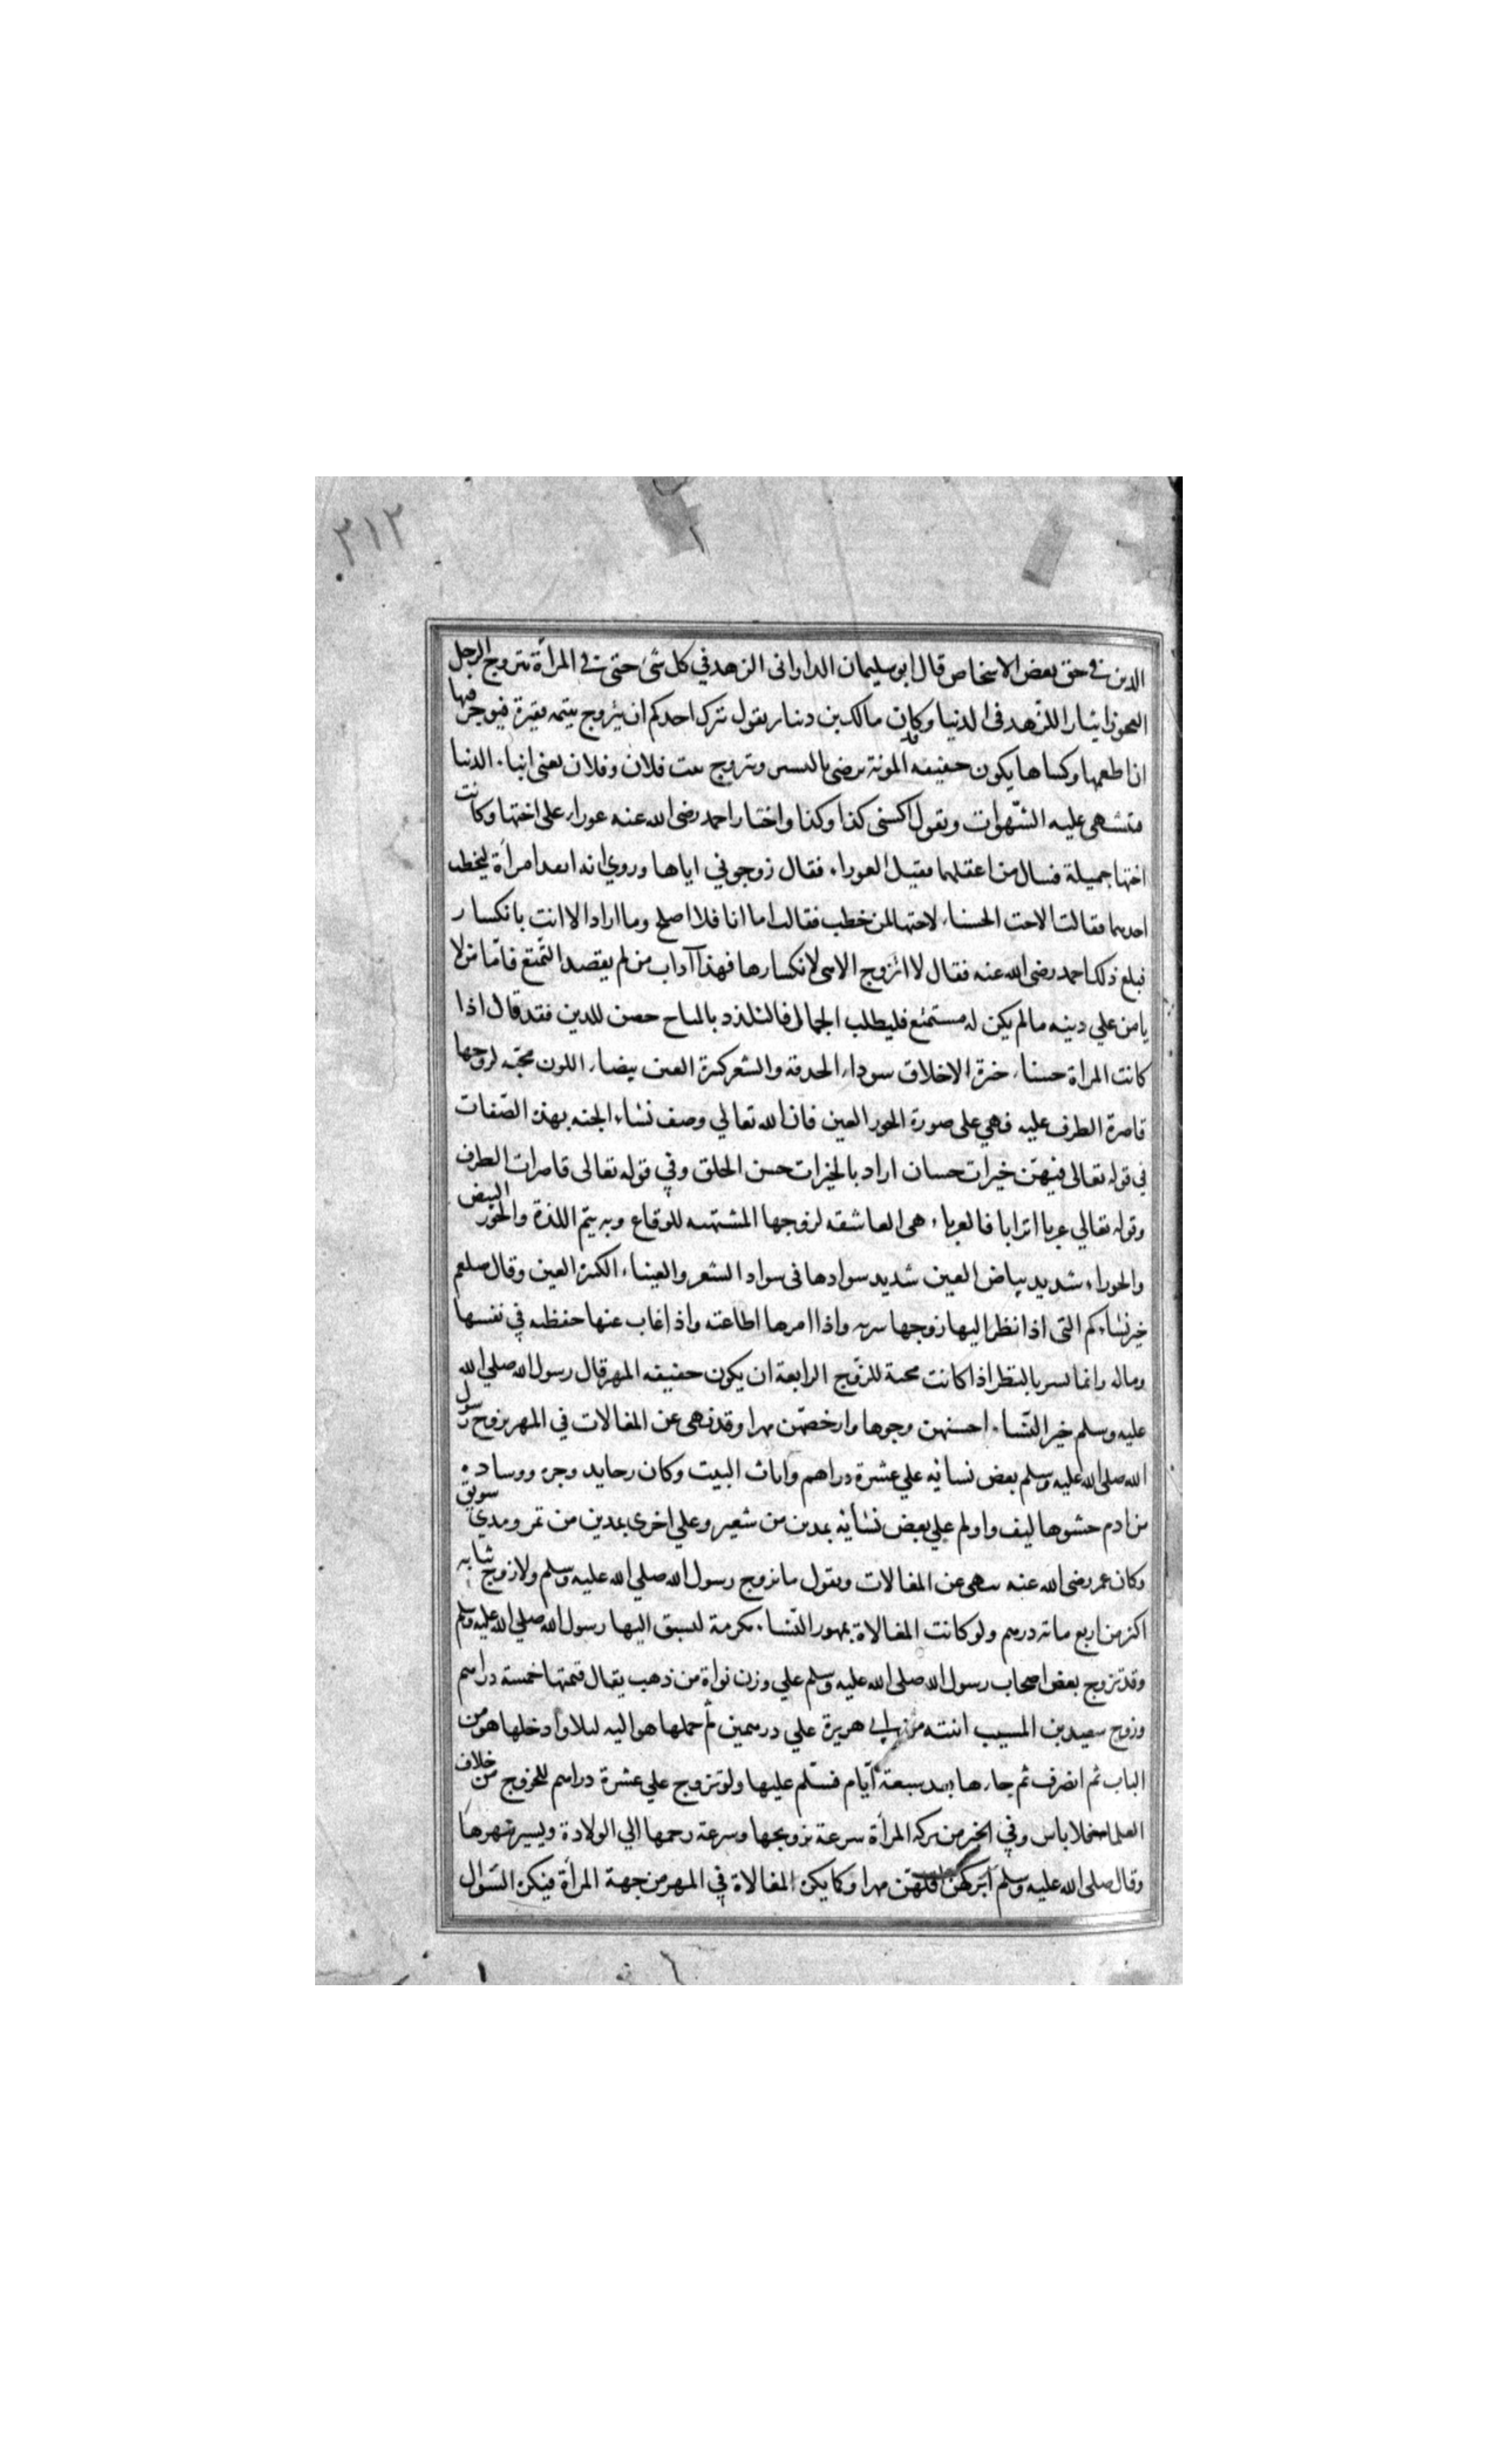 ٣١٢
الدين في حق بعض الاشخاص قال ابو سليمان الداراني الزهد في كل شئ حتى في المرأة يتزوج الرجل
العجوز ايثارا للزهد في الدنيا وكان مالك بن دينار يقول يترك احدكم ان يتزوج يتيمه فقيرة فيوجر فيها
ان اطعمها وكساها يكون خفيفه المونة ترضى باليسير ويتزوج بنت فلان وفلان يعنى ابناء الدنيا
فتشهى عليه الشهوات وتقول اكسنى كذا وكذا واختار احمد رضى الله عنه عوراء على اختها وكانت
اختها جميلة فسال من اعقلهما فقيل العوراء فقال زوجوني اياها وروي انه ابعد امرأة ليخطب
احديهما فقالت الاخت الحسناء لاختها لمن خطب فقالت اما انا فلا اصلح وما اراد الا انت بانكسار
فبلغ ذلك احمد رضى الله عنه فقال لا اتزوج الا هي لانكسارها فهذا آداب من لم يقصد التمتع فامّا من لا
يامن علي دينه ما لم يكن له مستمتع فليطلب الجمال فالتلذذ بالمباح حصن للدين فقد قال اذا
كانت المرأة حسناء خيرة الاخلاق سوداء الحدقة والشعر كبيرة العين بيضاء اللون محبّه لزوجها
قاصرة الطرف عليه فهي على صورة الحور العين فان الله تعالي وصف نساء الجنه بهذه الصّفات
في قوله تعالى فيهنّ خيرات حسان اراد بالخيرات حسن الخلق وفي قوله تعالى قاصرات الطرف
وقوله تعالي عربا اترابا فالعرباء هى العاشقه لزوجها المشتهيه للوقاع وبه يتم اللذة والحور البيض
والحوراء شديد بياض العين شديد سوادها فى سواد الشعر والعيناء الكبيرة العين وقال صلعم
خير نساءكم التى اذا نظر اليها زوجها سرته واذا امرها اطاعته واذا غاب عنها حفظته في نفسها
وماله وانما يسر بالنظر اذا كانت محبة للزّوج الرابعة ان يكون خفيفه المهر قال رسول الله صلي الله
عليه وسلم خير النّساء احسنهن وجوها وارخصهّن مهرا وقد نهى عن المغالات في المهر تزوج رسول
الله صلى الله عليه وسلم بعض نسائه علي عشرة دراهم واثاث البيت وكان رحا يد وجره ووساده
من ادم حشوها ليف واولم علي بعض نسائه بمدين من شعير وعلي اخرى بمدين من تمر ومدي سويق
وكان عمر رضى الله عنه ينهى عن المغالات ويقول ما تزوج رسول الله صلي الله عليه وسلم ولا زوج بناته
اكثر من اربع مائه درهم ولو كانت المغالاة بمهور النّساء مكرمة لسبق اليها رسول الله صلي الله عليه وسلم
وقد تزوج بعض اصحاب رسول الله صلى الله عليه وسلم علي وزن نواة من ذهب يقال قيمتها خمسة دراهم
وزوج سعيد بن المسيب ابنته من ابي هريرة علي درهمين ثم حملها هو اليه ليلا وادخلها هو من
الباب ثم انصرف ثم جاءها بعد سبعة ايّام فسلّم عليها ولو تزوج علي عشرة دراهم للخروج من خلاف
العلماء فلا باس وفي الخبر من بركه المرأة سرعة تزويجها وسرعة رحمها الي الولادة ويسير مهرها
وقال صلى الله عليه وسلم ابركهن اقلهنّ مهرا وكما يكره المغالاة في المهر من جهة المرأة فيكره السّؤال